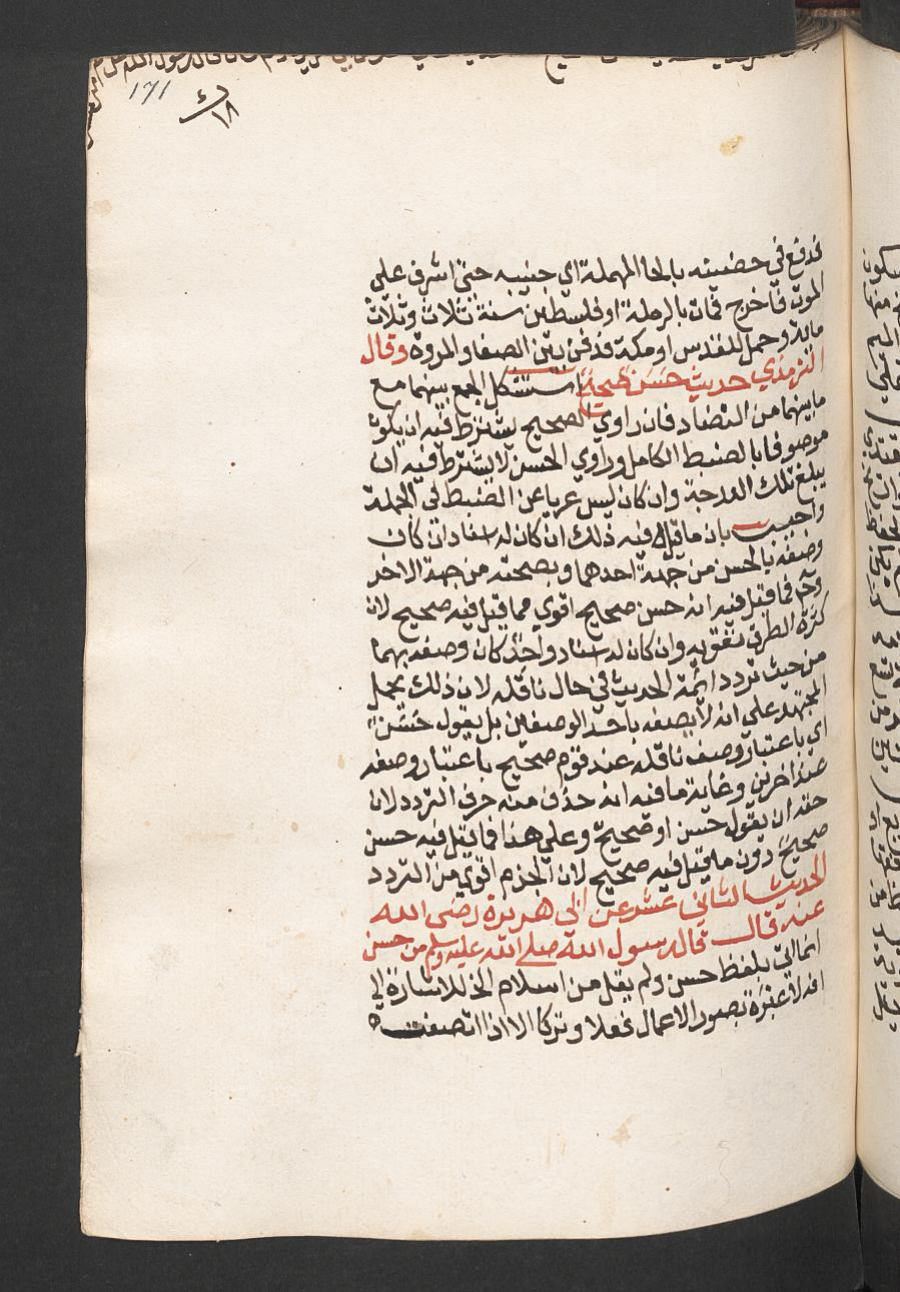 171
١٨
فدفع في حضنيته بالحا المهملة اي جنبيه حتى اشرف على
الموت فاخرج فمات بالرملة او فلسطين سنة ثلاث وثلاث
ماية وحمل للمقدس او مكة فدفن بين الصفا والمروة وقال
الترمذي حديث حسن صحيح استشكل الجمع بينهما مع
ما بينهما من التضاد فان راوي الصحيح يشترط فيه ان يكون
موصوفا بالضبط الكامل وراوي الحسن لا يشترط فيه ان
يبلغ تلك الدرجة وان كان ليس عريا عن الضبط في الجملة
واجيب بان ما قيل فيه ذلك ان كان له اسنادان كان
وصفه بالحسن من جهة احدهما وبصحته من جهة الاخر
وح فما قيل فيه انه حسن صحيح اقوي مما قيل فيه صحيح لان
كثرة الطرق تقويه وان كان له اسناد واحد كان وصفه بهما
من حيث تردد ائمة الحديث في حال ناقله لان ذلك يحمل
المجتهد علي انه لا يصفه باحد الوصفين بل يقول حسن
اي باعتبار وصف ناقله عند قوم صحيح باعتبار وصفه
عند اخرين وغاية ما فيه انه حذف منه حرف التردد لان
حقه ان يقول حسن او صحيح وعلي هذا فما قيل فيه حسن
صحيح دون ما قيل فيه صحيح لان الجزم اقوي من التردد
الحديث الثاني عشر عن ابي هريرة رضى الله
عنه قال قال رسول الله صلى الله عليه وسلم من حسن
انما اتي بلفظ حسن ولم يقل من اسلام الخ للاشارة الي
انه لا عبرة بصور الاعمال فعلا وتركا الا اذا اتصفت